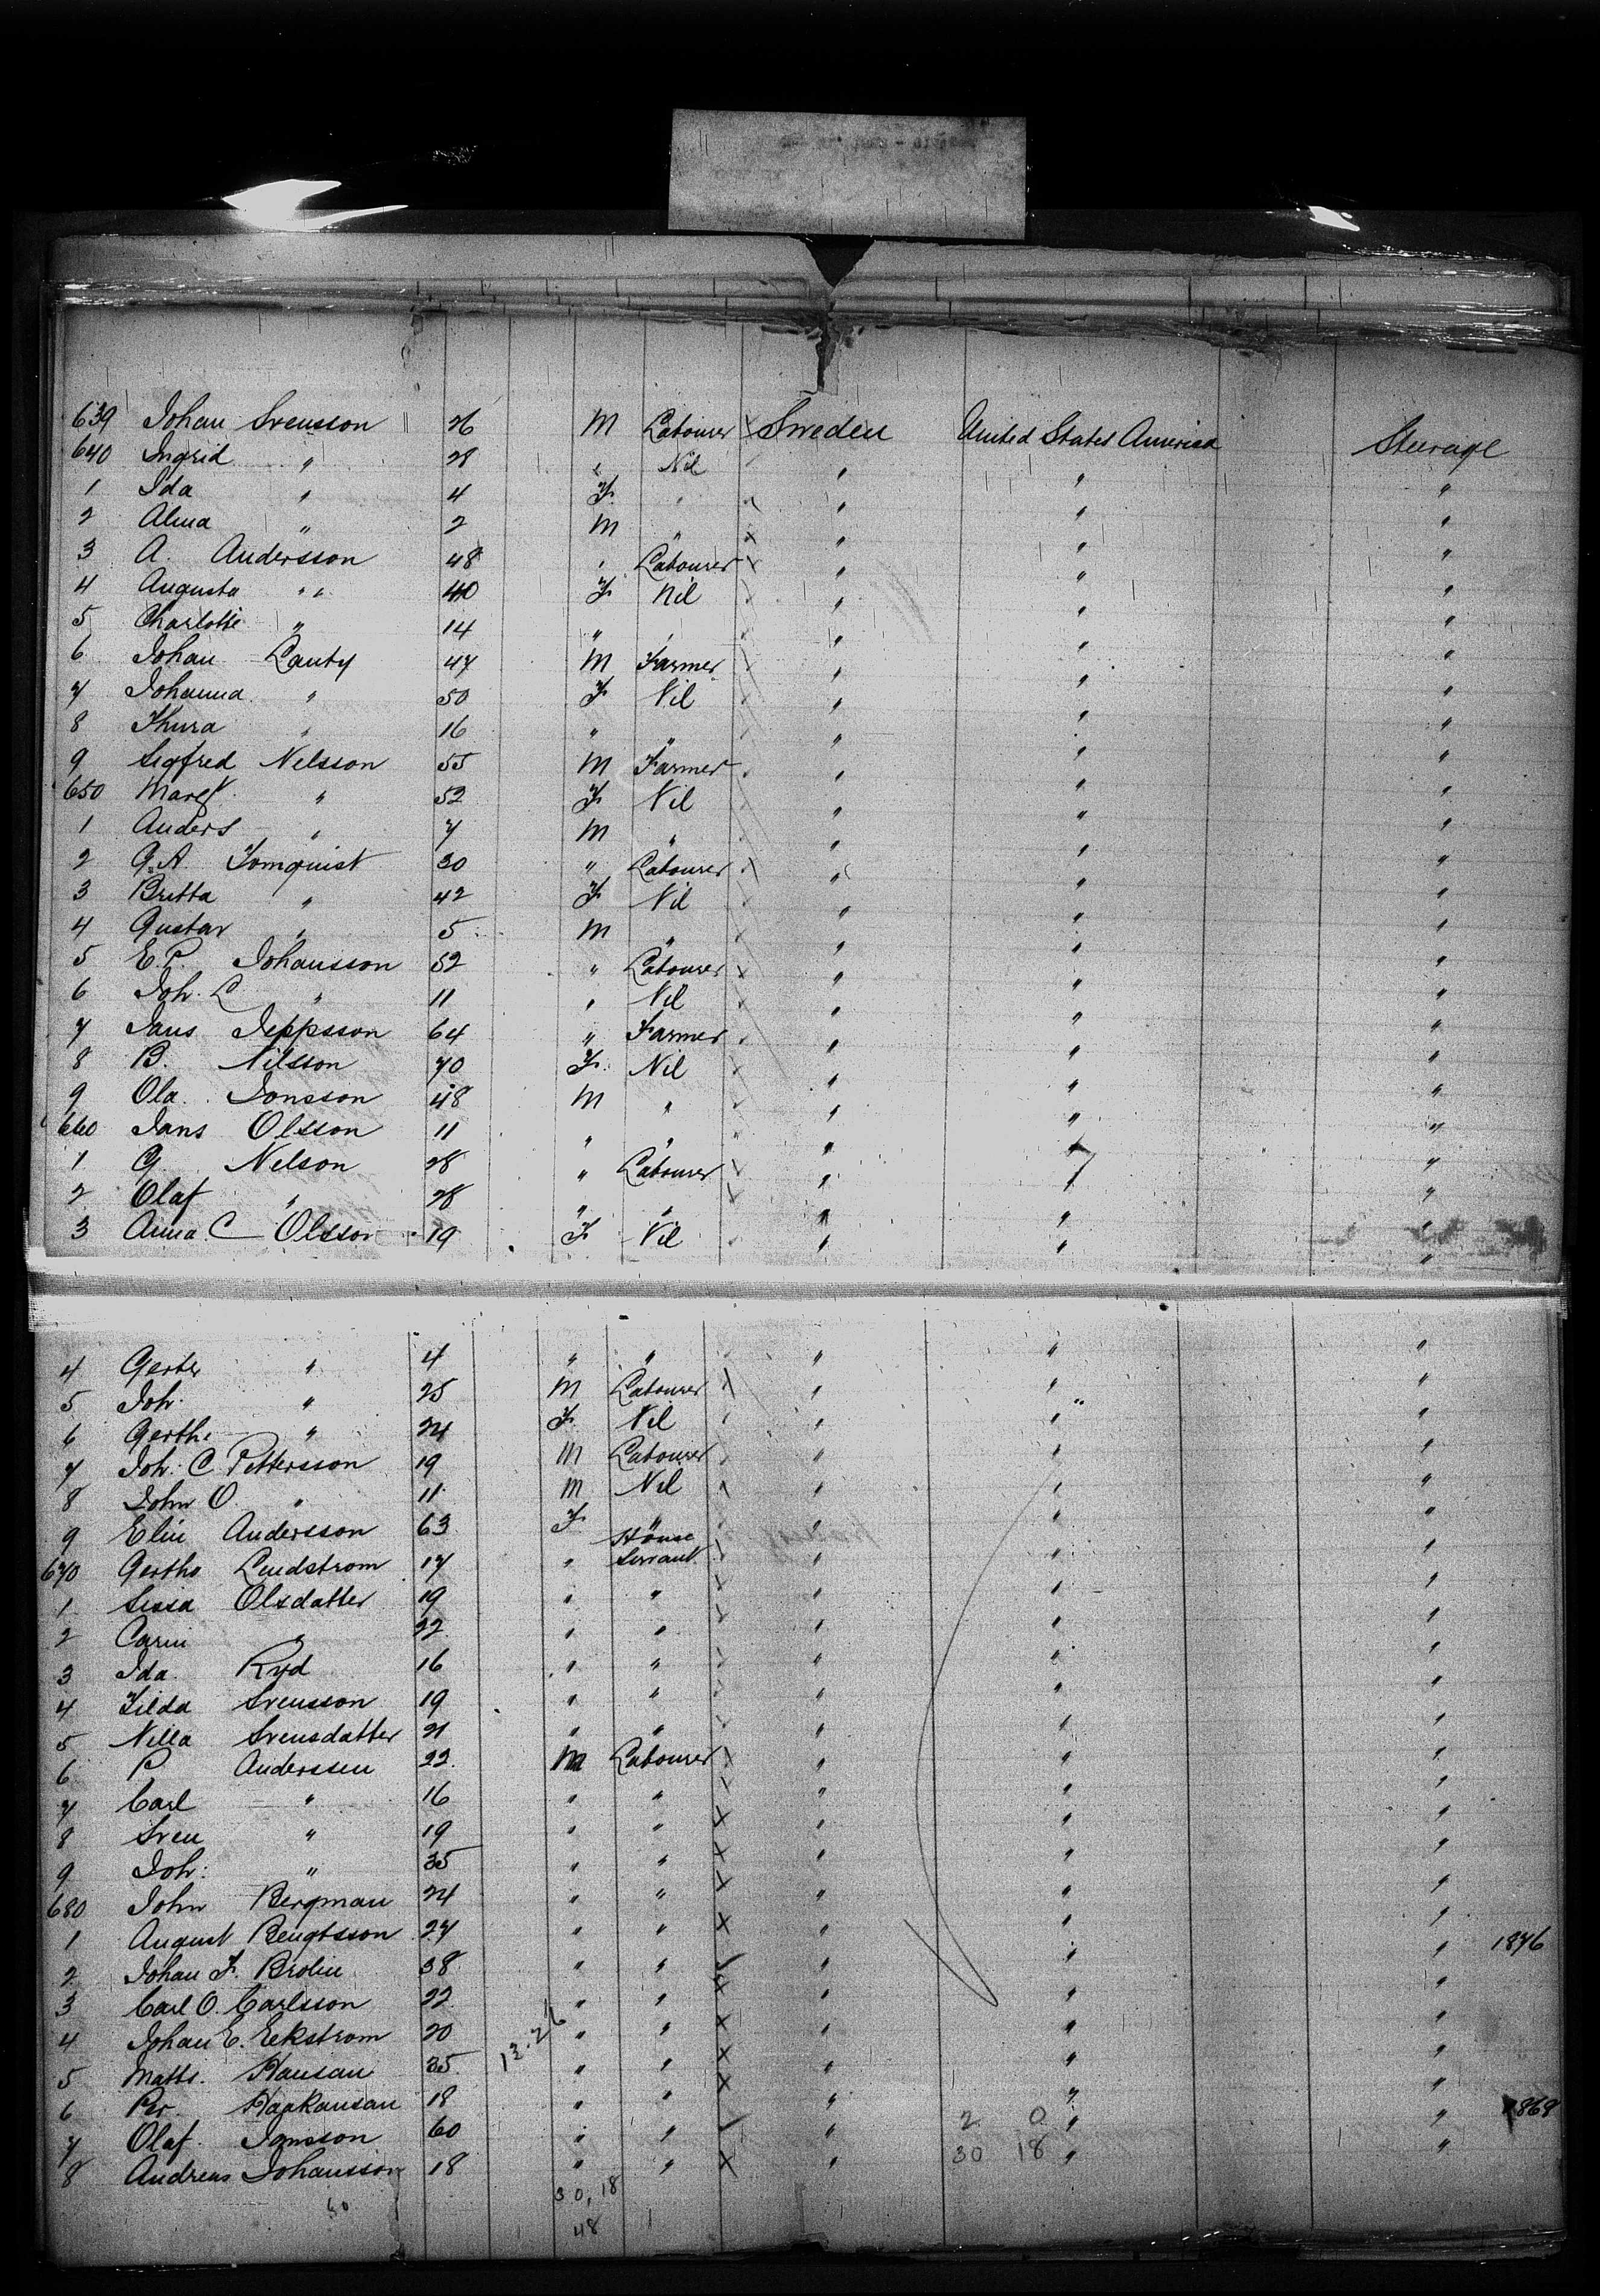 639 Johan Svensson 26 M Labourer Sweden United States America Steerage
640 Ingrid " 28 " Nil " " "
1 Ida " 4 F. " " " "
2 Alma " 2 M " " " "
3 A. Andersson 48 " Labourer " " "
4 Augusta " 40 F. Nil " " "
5 Charlotte " 14 " " " " "
6 Johan Lanty 47 M Farmer " " "
7 Johanna " 50 F. Nil " " "
8 Thura " 16 " " " " "
9 Sigfred Nelsson 55 M Farmer " " "
650 Margt " 52 F. Nil " " "
1 Anders " 7 M " " " "
2 G.A. Tomquist 30 " Labourer " " "
3 Britta " 42 F. Nil " " "
4 Gustav " 5 M " " " "
5 E.P. Johansson 52 " Labourer " " "
6 Joh. L " 11 " Nil " " "
7 Jans Jeppsson 64 " Farmer " " "
8 B. Nilsson 70 F. Nil " " "
9 Ola. Jonsson 48 M " " " "
660 Jans Olsson 11 " " " " "
1 G. Nelson 28 " Labourer " " "
2 Olaf " 28 " " " " "
3 Anna C Olsson 19 F. Nil " " "
4 " 4 " " " " "
5 Joh. " 25 M Labourer " " "
6 Gerthe " 24 F. Nil " " "
7 Joh. C Pettersson 19 M Labourer " " "
8 John O " 11 M Nil " " "
9 Elin Andersson 63 F. " " " "
670 Gertho Lindstrom 17 " House Servant " " "
1 Sissa Olsdatter 19 " " " " "
2 Carin " 22 " " " " "
3 Ida Ryd 16 " " " " "
4 Tilda Svensson 19 " " " " "
5 Nilla Svensdatter 21 " " " " "
6 P. Anderssen 22 M Labourer " " "
7 Carl " 16 " " " " "
8 Sven " 19 " " " " "
9 Joh: " 35 " " " " "
680 John Bergman 24 " " " " "
1 August Bengtsson 27 " " " " " 1876
2 Johan F. Brolin 38 " " " " "
3 Carl O. Carlsson 22 " " " " "
4 Johan E. Eekstrom 20 " " " " "
5 Matts. Hansan 35 12.26 " " " " "
6 Per. Haakansan 18 " " " " "
7 Olaf. Jonsson 60 " " " 2 0 " " 1868
8 Andreas Johansson 18 " " " 30 18 " "
30 30, 18
48